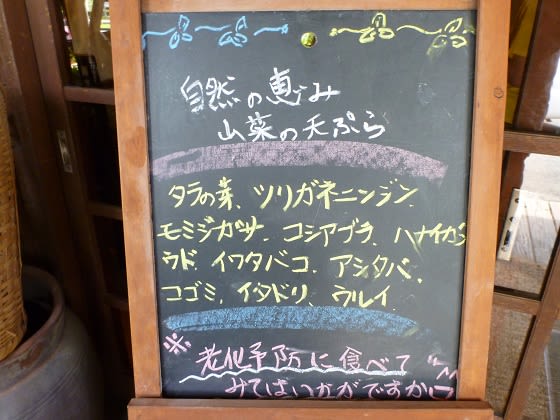 自然の恵み
山菜の天ぷら
タラの芽、ツリガネニンジン
モミジガサ、コシアブラ、ハナイカダ
ウド、イワタバコ、アシタバ、
コゴミ、イタドリ、ウルイ
※老化予防に食べて
みてはいかがですか